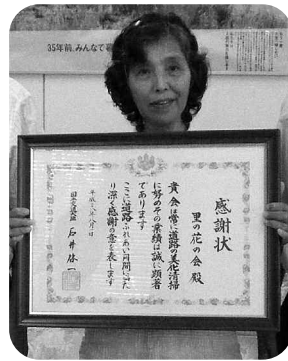 35年前、みんなで
感謝状
里の花の会 殿
貴会は常に道路の美化清掃
に努めその業績は誠に顕著
であります
ここに道路ふれあい月間にあた
り深く感謝の意を表します
国土交通大臣 石井啓一